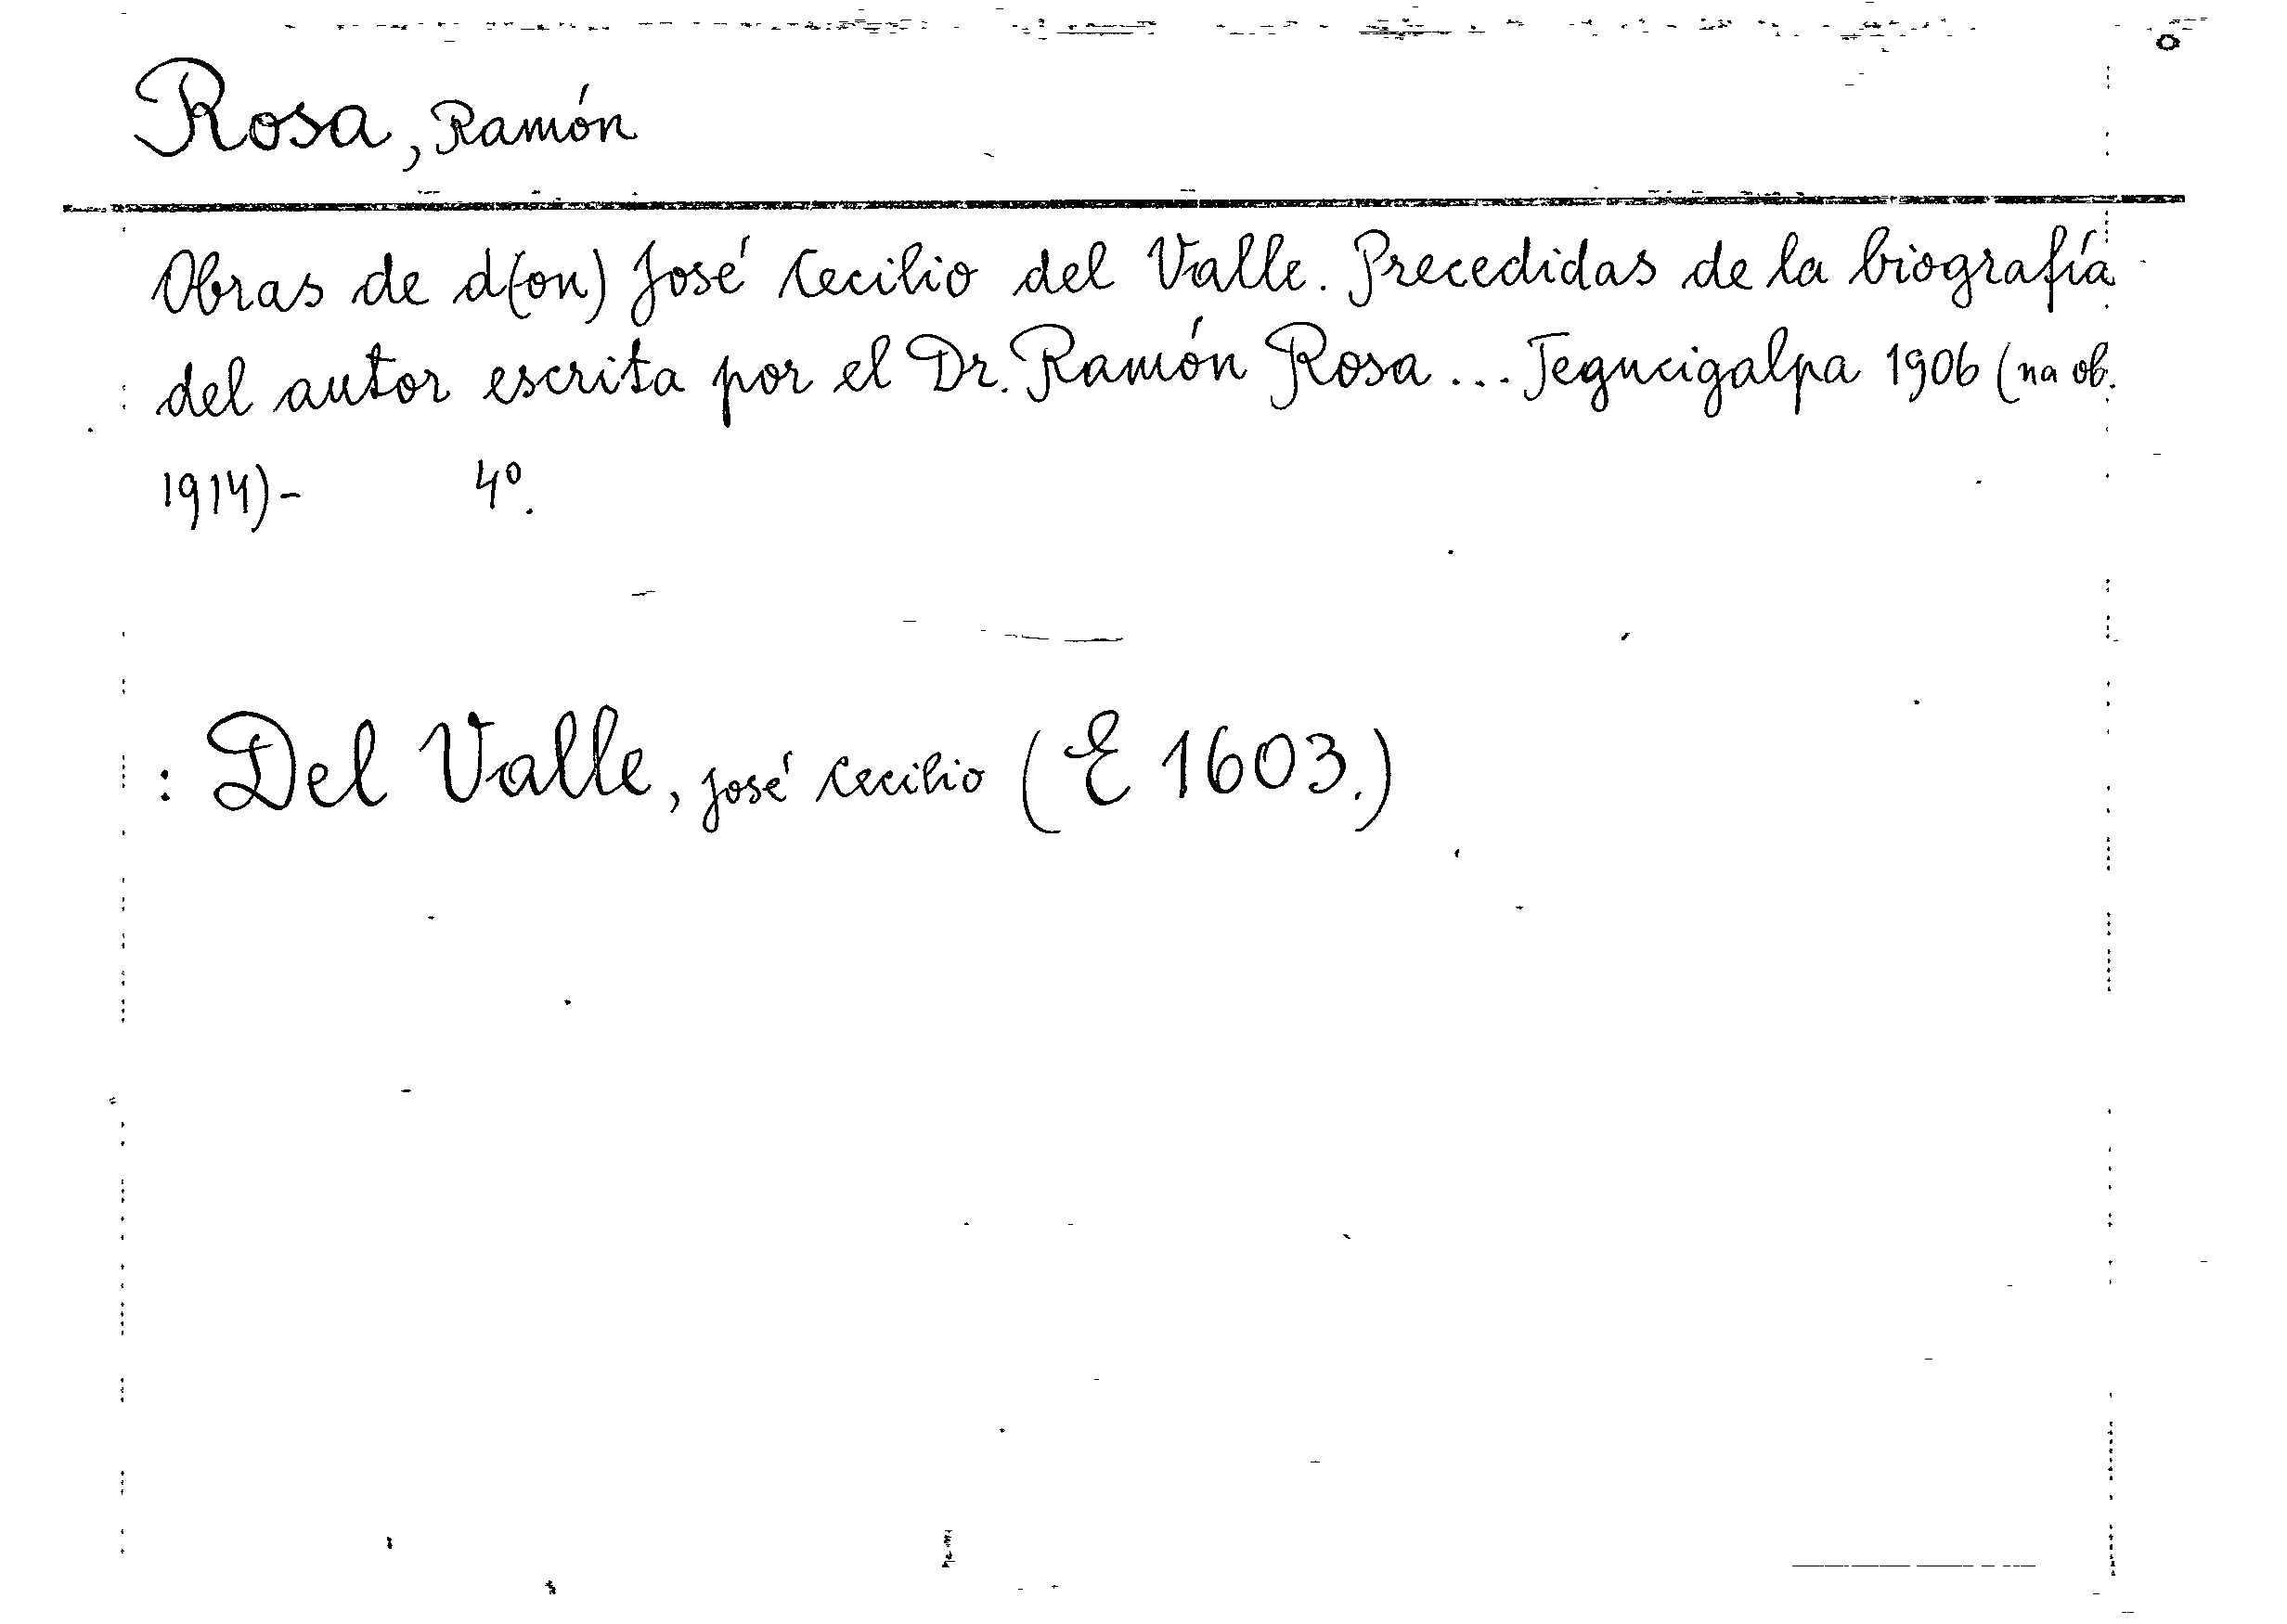 Rosa, Ramón
Obras de d(on) José Cecilio del Valle. Precedidas de la biografía
del autor escrita por el Dr. Ramón Rosa ... Tegucigalpa 1906 (na ob.
1914)- 4º.
: Del Valle, José Cecilio (E 1603.)